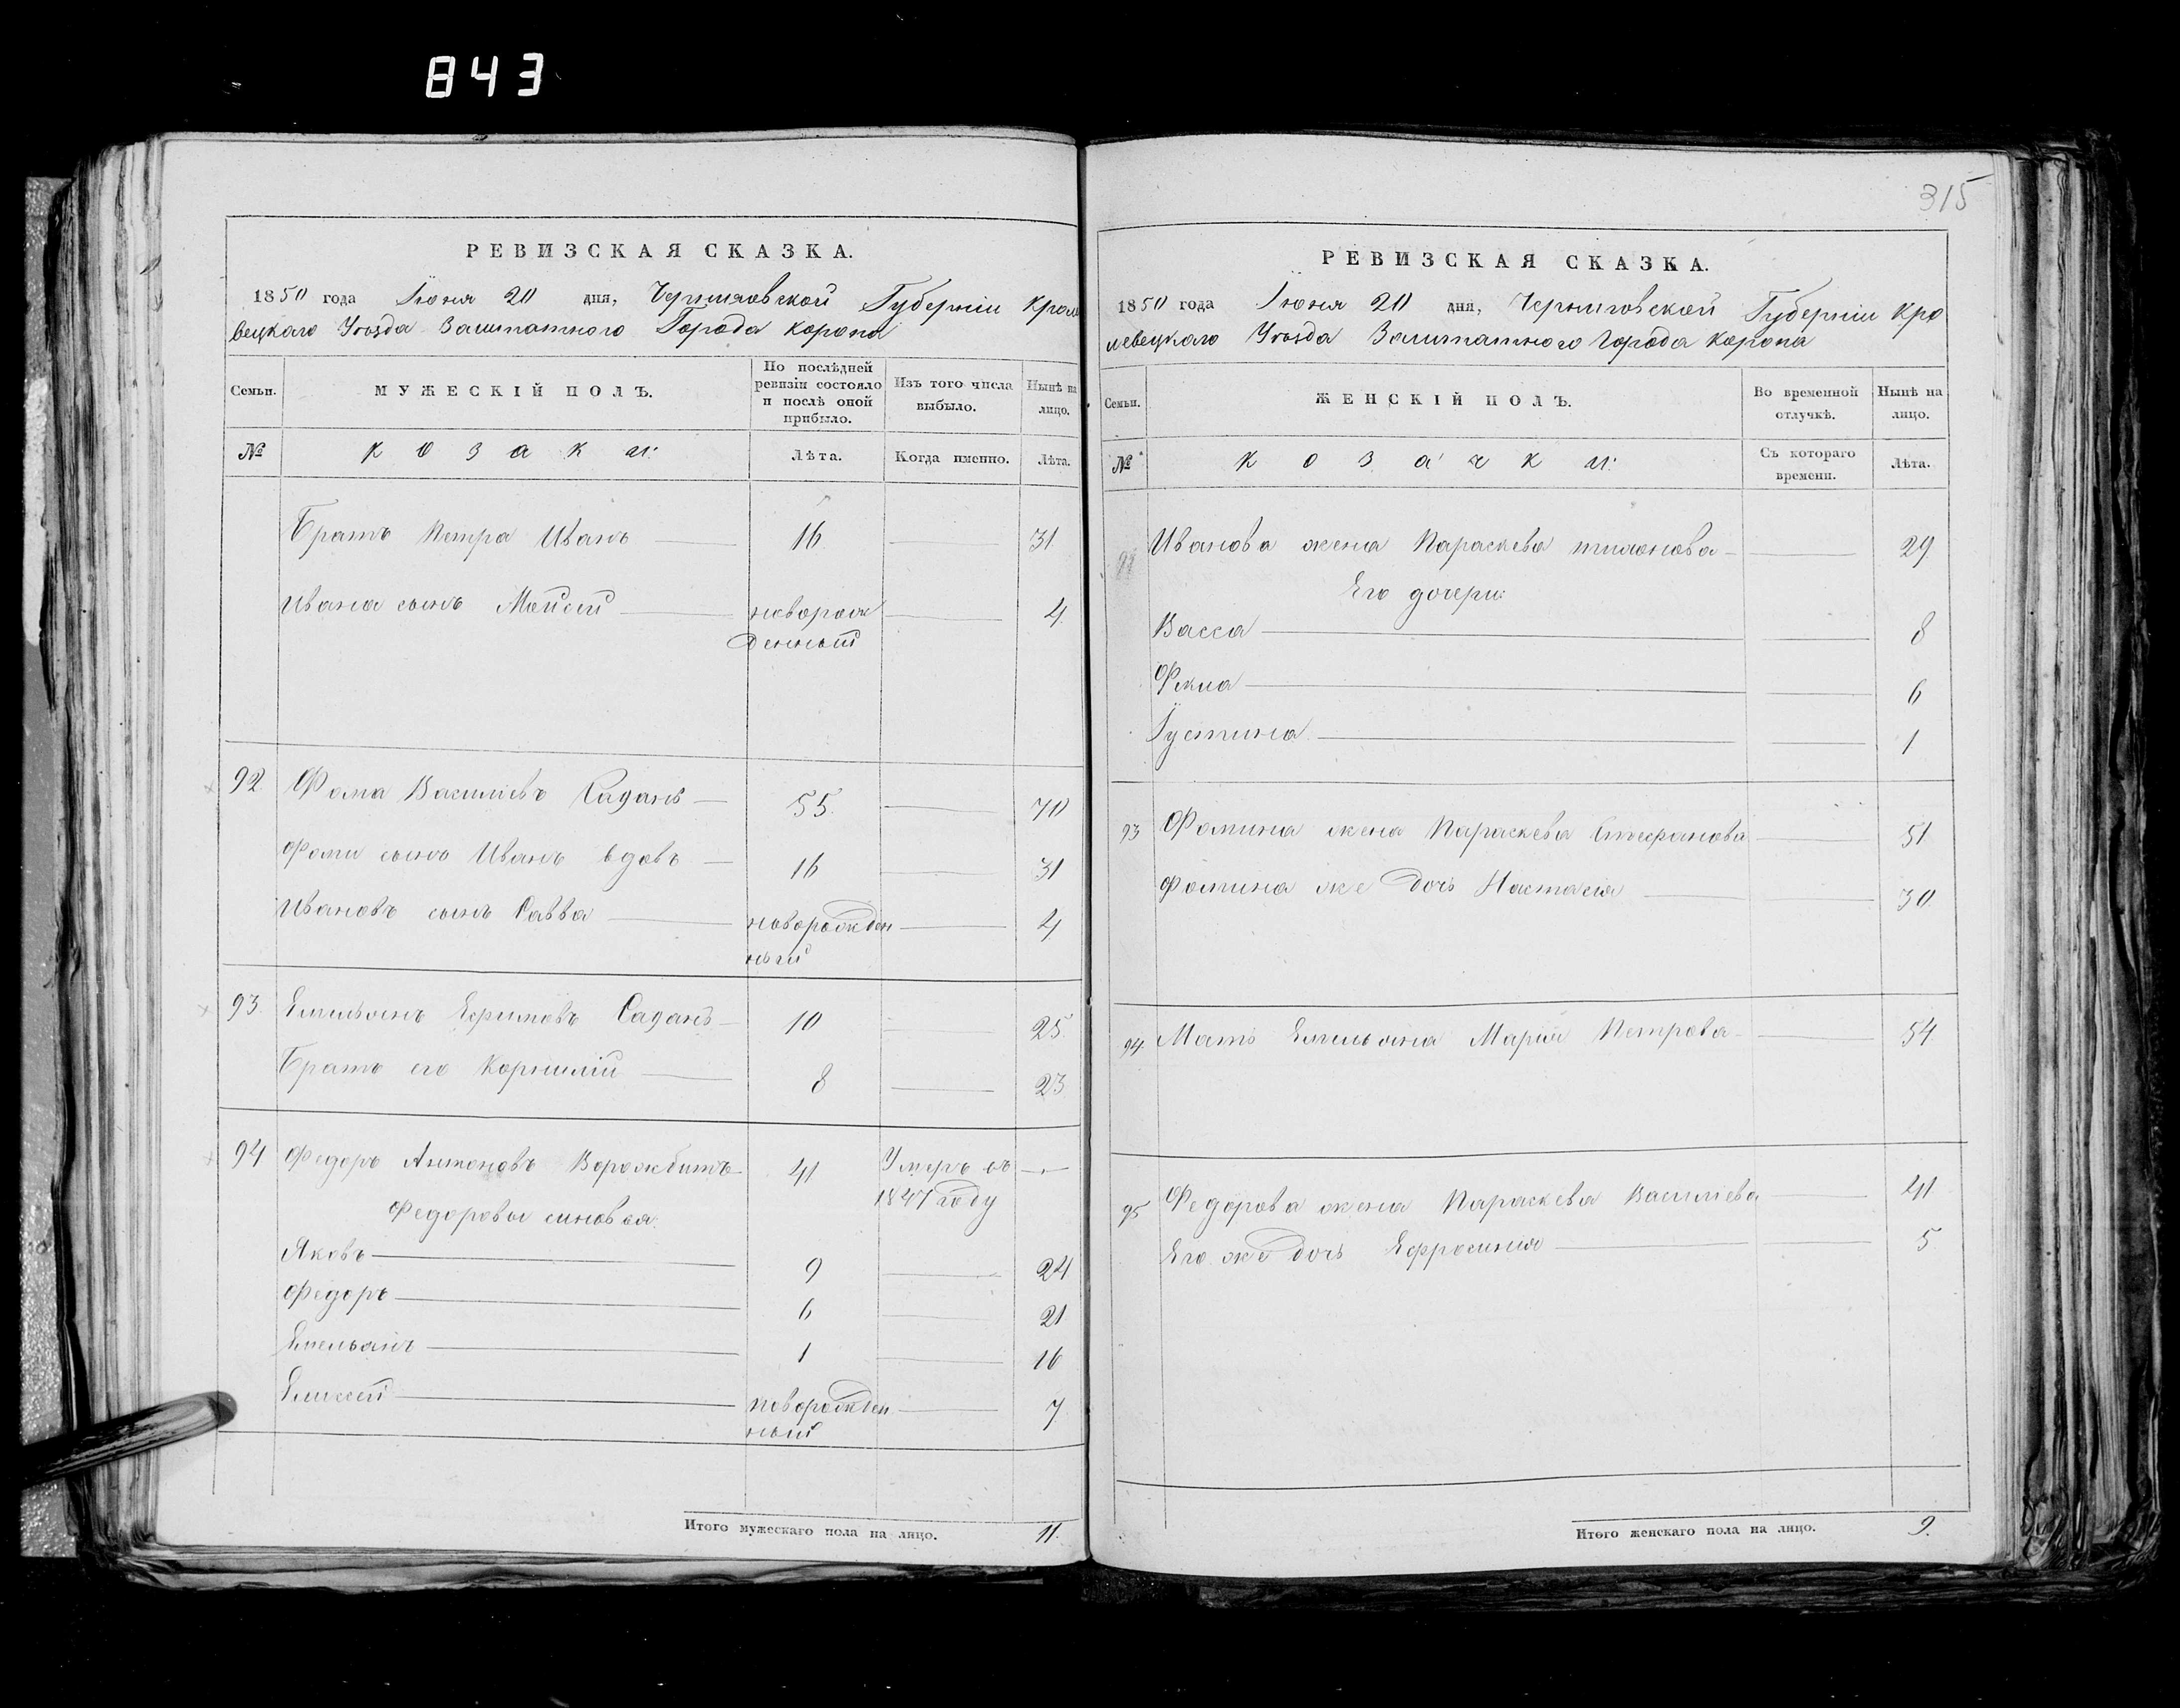 843
РЕВИЗСКАЯ СКАЗКА.
1850 года Іюня 20 дня, Черниговской Губерніи Кроле
вецкаго Уѣзда Заштатного Города Коропа
Семьи. МУЖЕСКІЙ ПОЛЪ. По послѣдней ревизіи состояло и послѣ оной прибыло. Изъ того числа выбыло. Нынѣ на лицо.
№ Козаки: Лѣта. Когда именно. Лѣта.
Братъ Петра Иванъ 16 31.
Ивана сынъ Мойсей новорож 4
денный
92 Фома Васильевъ Саданъ 55. 70
Фоми сынъ Иванъ вдовъ 16 31
Ивановъ сынъ Савва новорожден 4
ный
93. Емельянъ Ефимовъ Саданъ 10 25.
Братъ его Корнилій 8 23
94 Федоръ Антоновъ Ворожбитъ 41 Умеръ въ
1847 году
Федоровы синовья:
Яковъ 9 24
Федоръ 6 21
Емельянъ 1 16
Елисей новорожден 7
ный
Итого мужескаго пола на лицо. 11.
315
РЕВИЗСКАЯ СКАЗКА.
1850 года Іюня 20 дня, Черниговской Губерніи Кро
левецкаго Уѣзда Заштатного Города Коропа
Семьи. ЖЕНСКІЙ ПОЛЪ. Во временной отлучкѣ. Нынѣ на лицо.
№ Козачки: Съ котораго времени. Лѣта.
Иванова жена Параскева 29
Его дочери:
Васса 8
Фекла 6
Іустина 1
93 Фомина жена Параскева Стефанова 51
Фомина же дочь Настасія 30.
94. Мать Емельяна Марія Петрова 54.
95 Федорова жена Параскева Васильева 41
Его же дочь Ефросинія 5
Итого женскаго пола на лицо. 9.